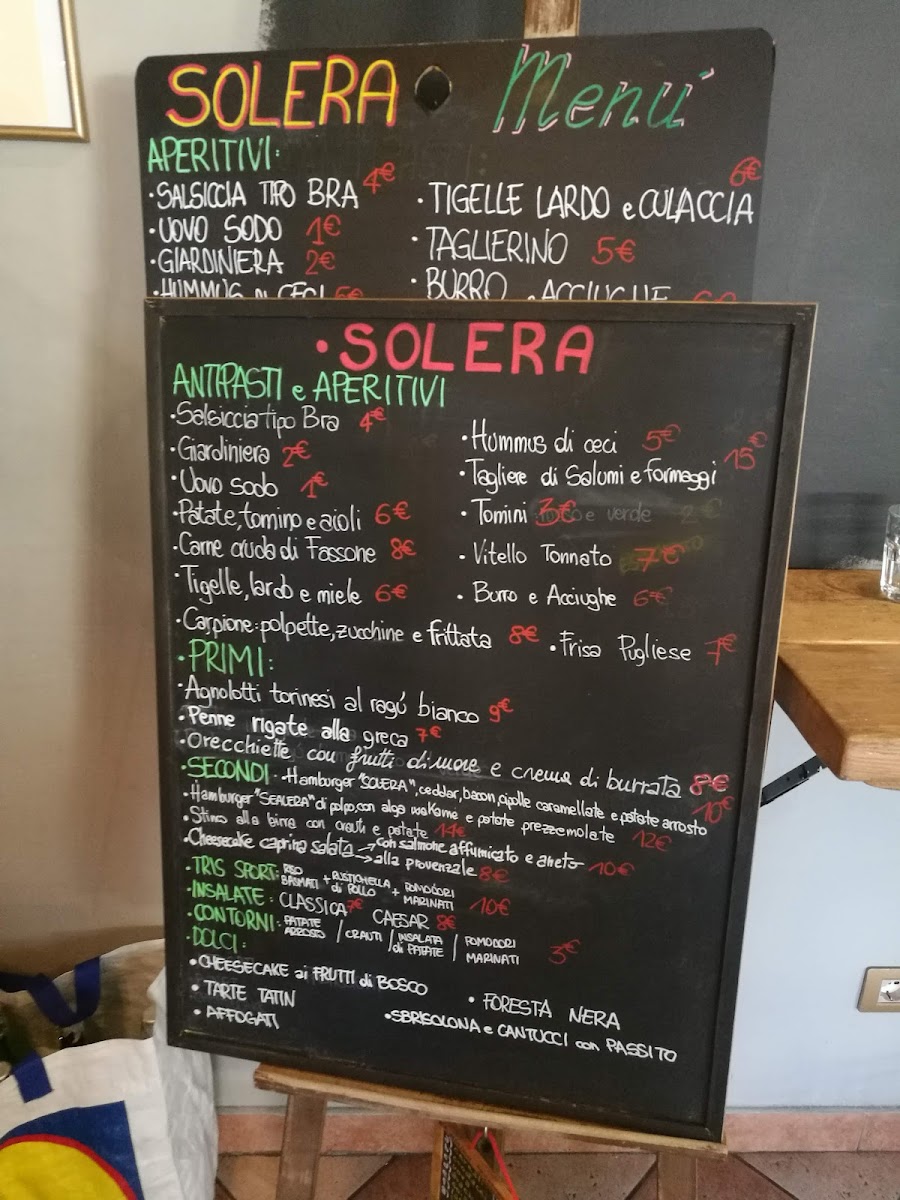 SOLERA Menú
APERITIVI:
·SALSICCIA TIPO BRA 4€
·UOVO SODO 1€
·GIARDINIERA 2€
·HUMMUS DI CECI 5€
·TIGELLE LARDO e CULACCIA 6€
·TAGLIERINO 5€
·BURRO e ACCIUGHE 6€
·SOLERA
ANTIPASTI e APERITIVI
·Salsiccia tipo Bra 4€
·Giardiniera 2€
·Uovo sodo 1€
·Patate, tomino e aioli 6€
·Carne cruda di Fassone 8€
·Tigelle, lardo e miele 6€
·Carpione: polpette, zucchine e frittata 8€
·Hummus di ceci 5€
·Tagliere di Salumi e formaggi 15€
·Tomini 3€ e verde 2€
·Vitello Tonnato 7€
·Burro e Acciughe 6€
·Frisa Pugliese 7€
·PRIMI:
·Agnolotti torinesi al ragú bianco 9€
·Penne rigate alla greca 7€
·Orecchiette con frutti di mare e crema di burrata 8€
·SECONDI ·Hamburger "SOLERA", ceddar, bacon, cipolle caramellate e patate arrosto 10€
·Hamburger "SEALERA" di polpo, con alga wakame e patate prezzemolate 12€
·Stinco alla birra con crauti e patate 14€
·Cheesecake caprina salata → con salmone affumicato e aneto 10€
→ alla provenzale 8€
·TRIS SPORT: RISO BASMATI + RUSTICHELLA di POLLO + POMODORI MARINATI 10€
·INSALATE: CLASSICA 7€ CAESAR 8€
·CONTORNI: PATATE ARROSTO / CRAUTI / INSALATA di PATATE / POMODORI MARINATI 3€
·DOLCI:
·CHEESECAKE ai FRUTTI di BOSCO
·TARTE TATIN
·AFFOGATI
·FORESTA NERA
·SBRISOLONA e CANTUCCI con PASSITO